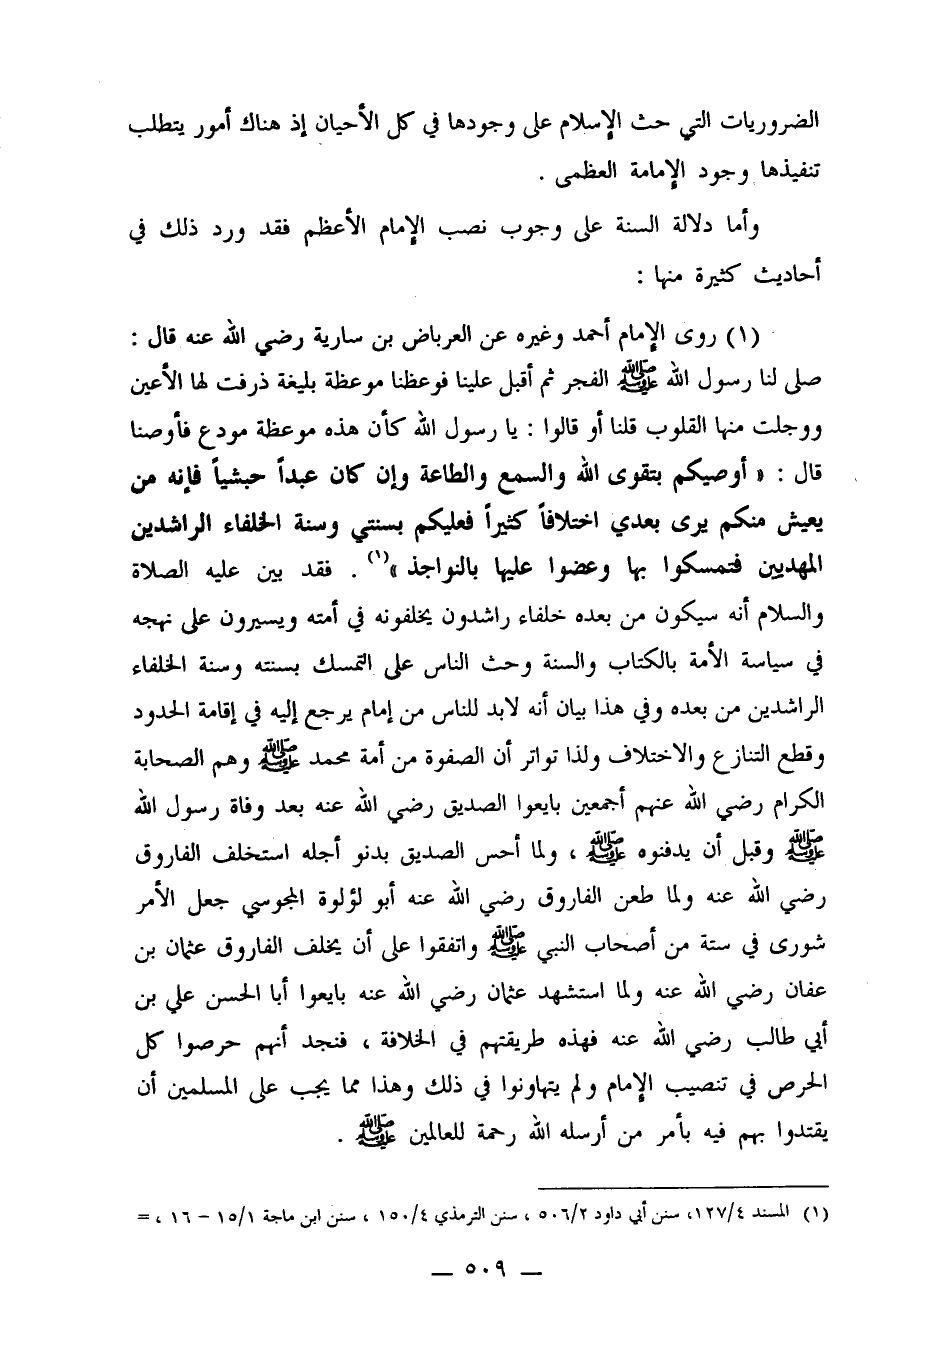 الضروريات التي حث الإسلام على وجودها في كل الأحيان إذ هناك أمور يتطلب
تنفيذها وجود الإمامة العظمى .
وأما دلالة السنة على وجوب نصب الإمام الأعظم فقد ورد ذلك في
أحاديث كثيرة منها :
(١) روى الإمام أحمد وغيره عن العرباض بن سارية رضي الله عنه قال :
صلى لنا رسول الله ﷺ الفجر ثم أقبل علينا فوعظنا موعظة بليغة ذرفت لها الأعين
ووجلت منها القلوب قلنا أو قالوا : يا رسول الله كأن هذه موعظة مودع فأوصنا
قال : « أوصيكم بتقوى الله والسمع والطاعة وإن كان عبداً حبشياً فإنه من
يعيش منكم يرى بعدي اختلافاً كثيراً فعليكم بسنتي وسنة الخلفاء الراشدين
المهديين فتمسكوا بها وعضوا عليها بالنواجذ »(١) . فقد بين عليه الصلاة
والسلام أنه سيكون من بعده خلفاء راشدون يخلفونه في أمته ويسيرون على نهجه
في سياسة الأمة بالكتاب والسنة وحث الناس على التمسك بسنته وسنة الخلفاء
الراشدين من بعده وفي هذا بيان أنه لابد للناس من إمام يرجع إليه في إقامة الحدود
وقطع التنازع والاختلاف ولذا تواتر أن الصفوة من أمة محمد ﷺ وهم الصحابة
الكرام رضي الله عنهم أجمعين بايعوا الصديق رضي الله عنه بعد وفاة رسول الله
ﷺ وقبل أن يدفنوه ﷺ ، ولما أحس الصديق بدنو أجله استخلف الفاروق
رضي الله عنه ولما طعن الفاروق رضي الله عنه أبو لؤلوة المجوسي جعل الأمر
شورى في ستة من أصحاب النبي ﷺ واتفقوا على أن يخلف الفاروق عثمان بن
عفان رضي الله عنه ولما استشهد عثمان رضي الله عنه بايعوا أبا الحسن علي بن
أبي طالب رضي الله عنه فهذه طريقتهم في الخلافة ، فنجد أنهم حرصوا كل
الحرص في تنصيب الإمام ولم يتهاونوا في ذلك وهذا مما يجب على المسلمين أن
يقتدوا بهم فيه بأمر من أرسله الله رحمة للعالمين ﷺ .
(١) المسند ١٢٧/٤، سنن أبي داود ٥٠٦/٢ ، سنن الترمذي ١٥٠/٤ ، سنن ابن ماجة ١٥/١ – ١٦ ، =
— ٥٠٩ —